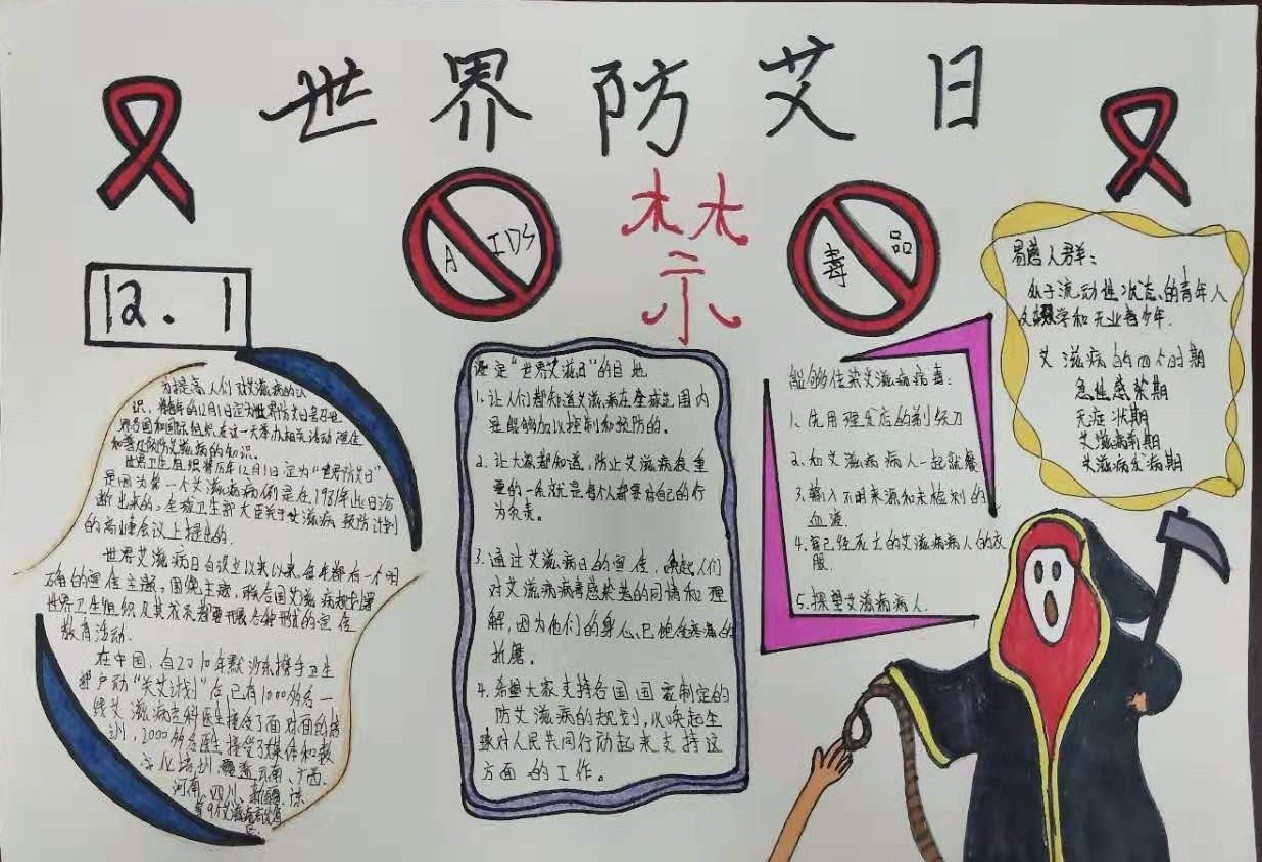 世界防艾日
AIDS
禁
毒品
12.1
为提高人们对艾滋病的认
识，将每年的12月1日定为世界防艾日号召世
界各国和国际组织在这一天举办相关活动宣传
和普及预防艾滋病的知识。
世界卫生组织将历年12月1日定为“世界防艾日”
是因为第一个艾滋病病例是在1981年此日诊
断出来的，在被卫生部大臣关于艾滋病预防计划
的高峰会议上提出的.
世界艾滋病日自设立以来以来每年都有一个明
确的宣传主题，围绕主题，联合国艾滋病规划署
世界卫生组织及其成员都要开展各种形式的宣传
教育活动.
在中国，自2010年默沙东携手卫生
启动“关艾计划”在已有1000多名一
线艾滋病专科医生接受了面对面的培
训，2000多名医生接受了媒体和数
字化培训.覆盖云南、广西、
河南、四川、新疆、
等9个艾滋病
选定“世界艾滋日”的目地
1、让人们都知道艾滋病在全球范围内
是能够加以控制和预防的.
2、让大家都知道，防止艾滋病很重
要的一条就是每个人都要对自己的行
为负责。
3、通过艾滋病日的宣传，唤起人们
对艾滋病病毒感染者的同情和理
解，因为他们的身心已饱受疾病的
折磨.
4、希望大家支持各国国家制定的
防艾滋病的规划，以唤起全
球对人民共同行动起来支持这
方面的工作。
能够传染艾滋病病毒：
1、使用理发店的剃头刀
2、和艾滋病病人一起就餐
3、输入不明来源和未检测的
血液.
4、穿已经死亡的艾滋病病人的衣
服.
5、探望艾滋病病人.
易感人群：
处于流动性状态的青年人
及辍学和无业青少年.
艾滋病的四个时期
急性感染期
无症状期
艾滋病前期
艾滋病发病期